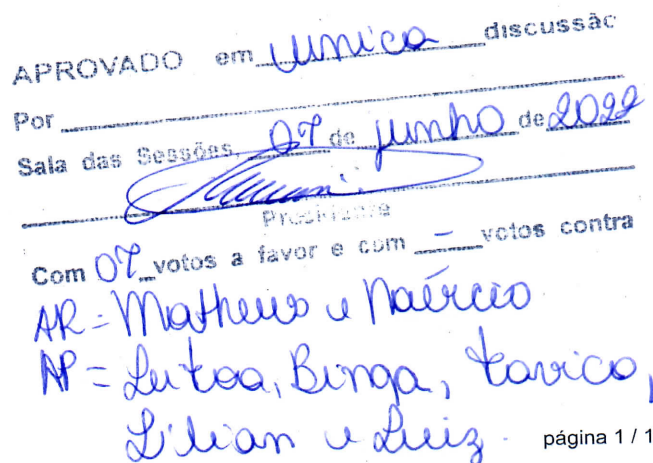 APROVADO em unica discussão
Por
Sala das Sessões, 07 de junho de 2022
Presidente
Com 07 votos a favor e com - votos contra
AR = Matheus e Naércio
AP = Leitoa, Binga, Tavico,
Lilian e Luiz.
página 1 / 1